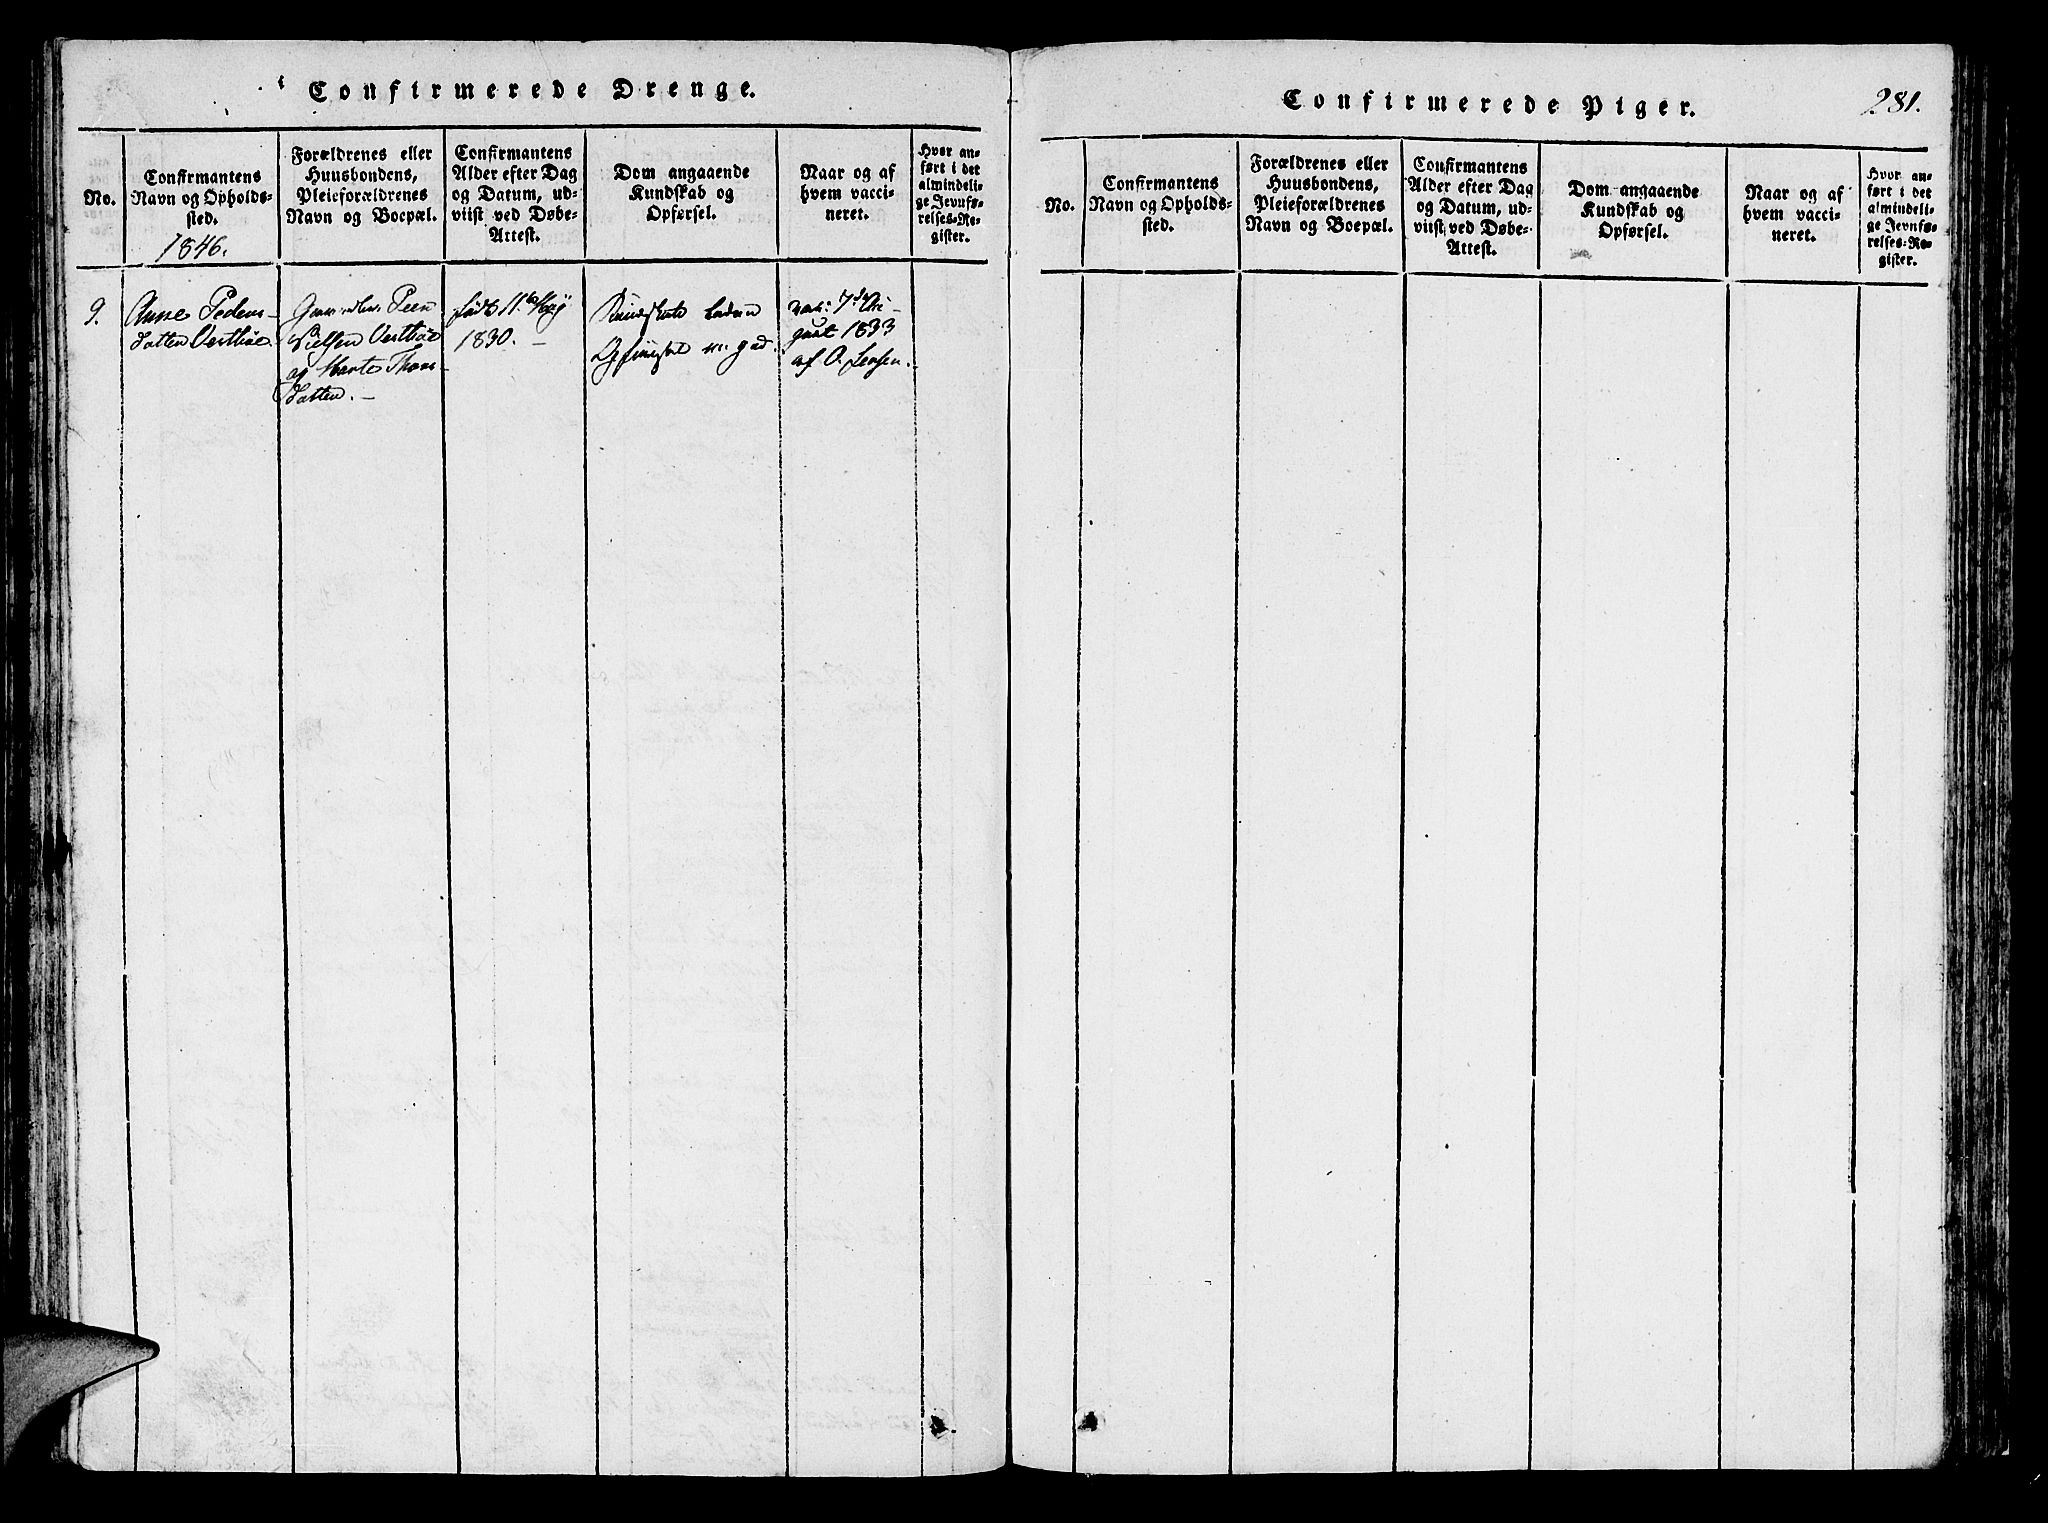 Confirmerede Drenge.
No.
Confirmantens
Navn og Opholds-
sted.
1846.
Forældrenes eller
Huusbondens,
Pleieforældrenes
Navn og Boepæl.
Confirmantens
Alder efter Dag
og Datum, ud-
viist ved Døbe-
Attest.
Dom angaaende
Kundskab og
Opførsel.
Naar og af
hvem vacci-
neret.
Hvor an-
ført i det
almindeli-
ge Jevnfø-
relses-Re-
gister.
9.
Anne Peders-
datter Vestbøe.
Peder
Nielsen Vestbøe
og Marte Thors-
datter. —
født 11te Maij
1830. —
Kundskab
Opførsel m: god.
vac: 7de Au-
gust 1833
af O. Jensen.
Confirmerede Piger.
281.
No.
Confirmantens
Navn og Opholds-
sted.
Forældrenes eller
Huusbondens,
Pleieforældrenes
Navn og Boepæl.
Confirmantens
Alder efter Dag
og Datum, ud-
viist ved Døbe-
Attest.
Dom angaaende
Kundskab og
Opførsel.
Naar og af
hvem vacci-
neret.
Hvor an-
ført i det
almindeli-
ge Jevnfø-
relses-Re-
gister.